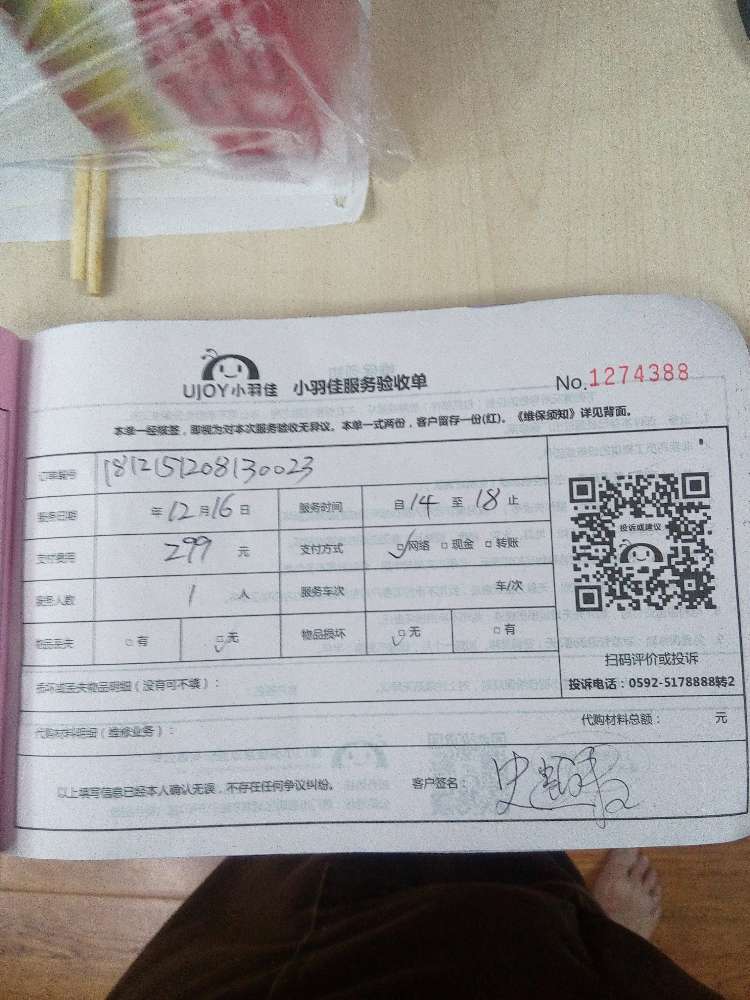 UJOY小羽佳 小羽佳服务验收单 No.1274388
本单一经核签，即视为对本次服务验收无异议。本单一式两份，客户留存一份(红)。《维保须知》详见背面。
订单编号 1812151208130023
服务日期 年12月16日 服务时间 自14至18止
支付费用 299 元 支付方式 网络 现金 转账
服务人数 1 人 服务车次 车/次
物品丢失 有 无 物品损坏 无 有
投诉或建议
扫码评价或投诉
投诉电话：0592-5178888转2
损坏或丢失物品明细（没有可不填）：
代购材料明细（维修业务）： 代购材料总额： 元
以上填写信息已经本人确认无误，不存在任何争议纠纷。 客户签名：史